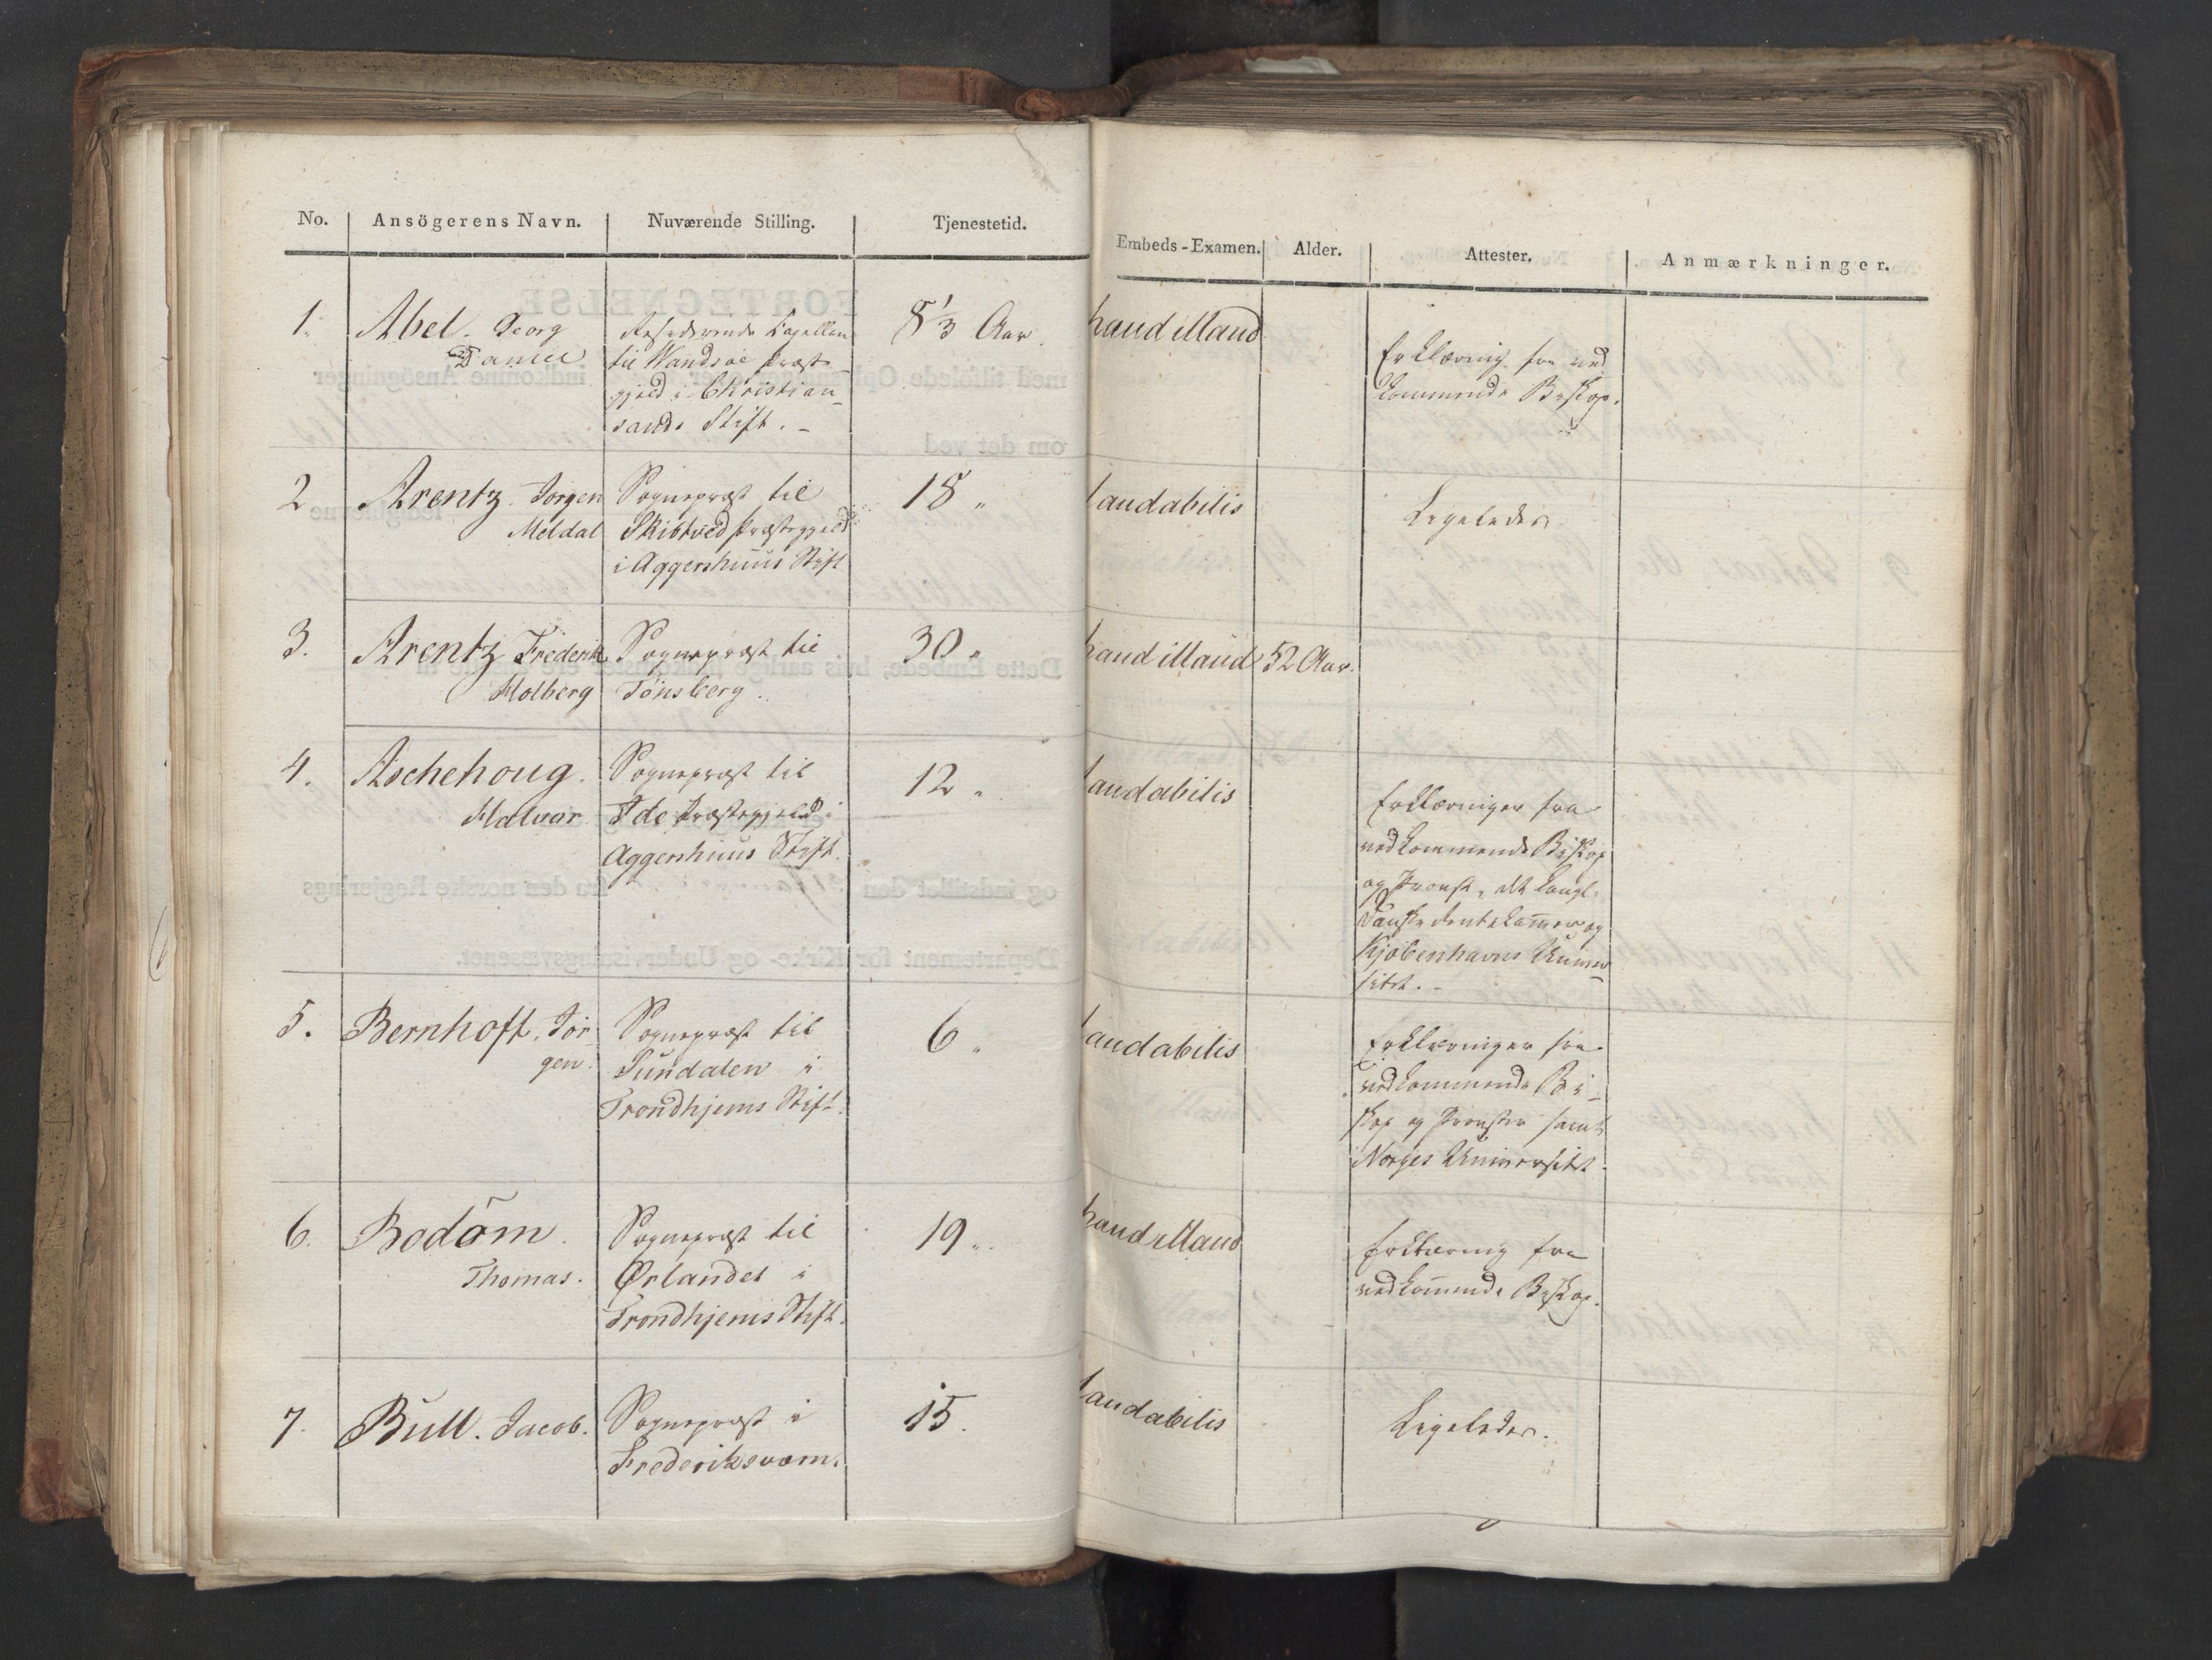 No. Ansögerens Navn. Nuværende Stilling. Tjenestetid. Embeds-Examen. Alder. Attester. Anmærkninger.
1. Abel. Georg
Daniel
Residerende Capellan
til Wandsøe Præste-
gjeld i Christian-
sands Stift. -
8 1/3 Aar.
haud illaud
Erklæring fra ved
kommende Biskop.
2 Arentz. Jørgen
Meldal
Sognepræst til
Skibtved Præstegjeld
i Aggershuus Stift
18 "
laudabilis
Ligeledes
3. Arentz Frederik
Holberg
Sognepræst til
Tönsberg.
30 "
haud illaud
52 Aar.
4. Aschehoug.
Halvor
Sognepræst til
Ide Præstegjeld i
Aggershuus Stift.
12 "
laudabilis
Erklæringer fra
vedkommende Biskop
og Provst, det kongl.
Danske Rentekam̅er og
Kjøbenhavns Univer-
sitet. -
5. Bernhoft. Jør-
gen.
Sognepræst til
Sundalen i
Trondhjems Stift.
6 "
laudabilis
Erklæringer fra
vedkommende Bi-
skop og Provster samt
Norges Universitet.
6. Bodöm.
Thomas.
Sognepræst til
Ørlandet i
Trondhjems Stift.
19 "
haud illaud
Erklæring fra
vedkom̅ende Biskop.
7. Bull. Jacob.
Sognepræst i
Frederiksværn.
15.
laudabilis
Ligeledes.